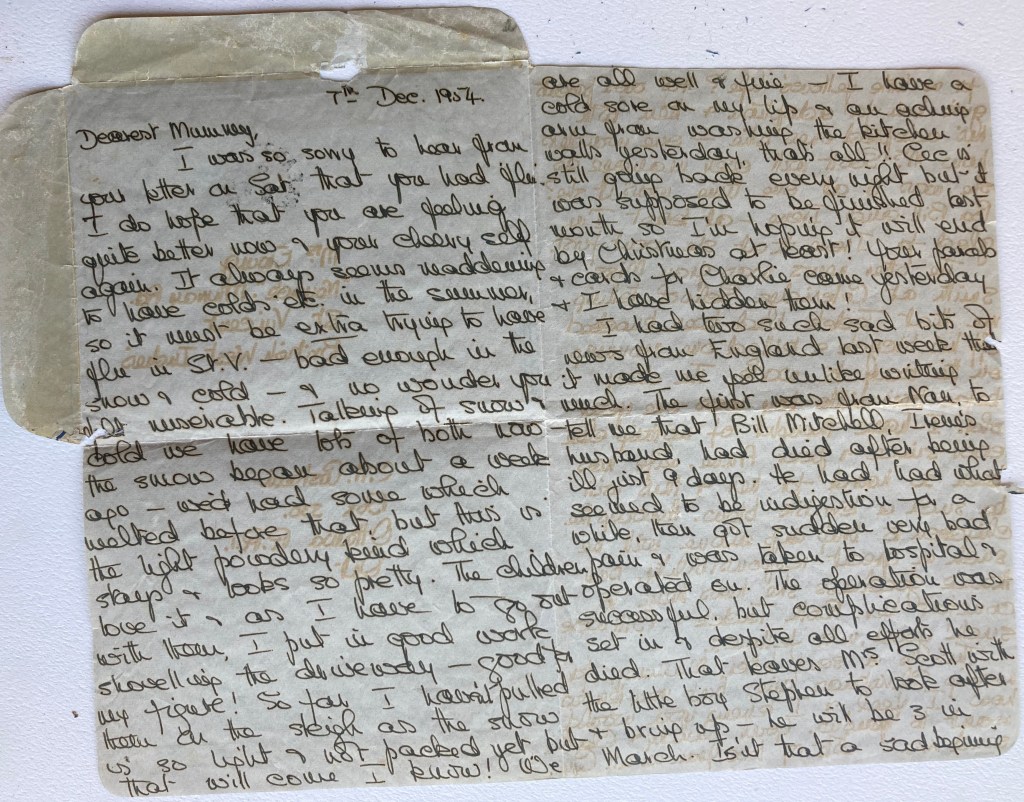 7th Dec. 1954.
Dearest Mummy,
I was so sorry to hear from
your letter on Sat. that you had flu.
I do hope that you are feeling
quite better now & your cheery self
again. It always seems maddening
to have colds etc in the summer,
so it must be extra trying to have
flu in St.V. – bad enough in the
snow & cold – & no wonder you
felt miserable. Talking of snow &
cold we have lots of both now
the snow began about a week
ago – we'd had some which
melted before that, but this is
the light powdery kind which
stays & looks so pretty. The children
love it & as I have to go out
with them, I put in good work
shovelling the driveway – good for
my figure! So far I haven't pulled
them on the sleigh as the snow
is so light & not packed yet but
that will come I know! We
are all well & fine – I have a
cold sore on my lip & an aching
arm from washing the kitchen
walls yesterday, that's all!! Cec is
still going back every night but it
was supposed to be finished last
month so I'm hoping it will end
by Christmas at least! Your parcels
& cards for Charlie came yesterday
& I have hidden them!
I had two such sad bits of
news from England last week that
it made me feel unlike writing
much. The first was from Nan, to
tell me that Bill Mitchell, Irene's
husband, had died after being
ill just 9 days. He had had what
seemed to be indigestion for a
while, then got sudden very bad
pain & was taken to hospital &
operated on. The operation was
successful, but complications
set in & despite all efforts he
died. That leaves Mrs Scott with
the little boy Stephen to look after
& bring up – he will be 3 in
March. Isn't that a sad beginning